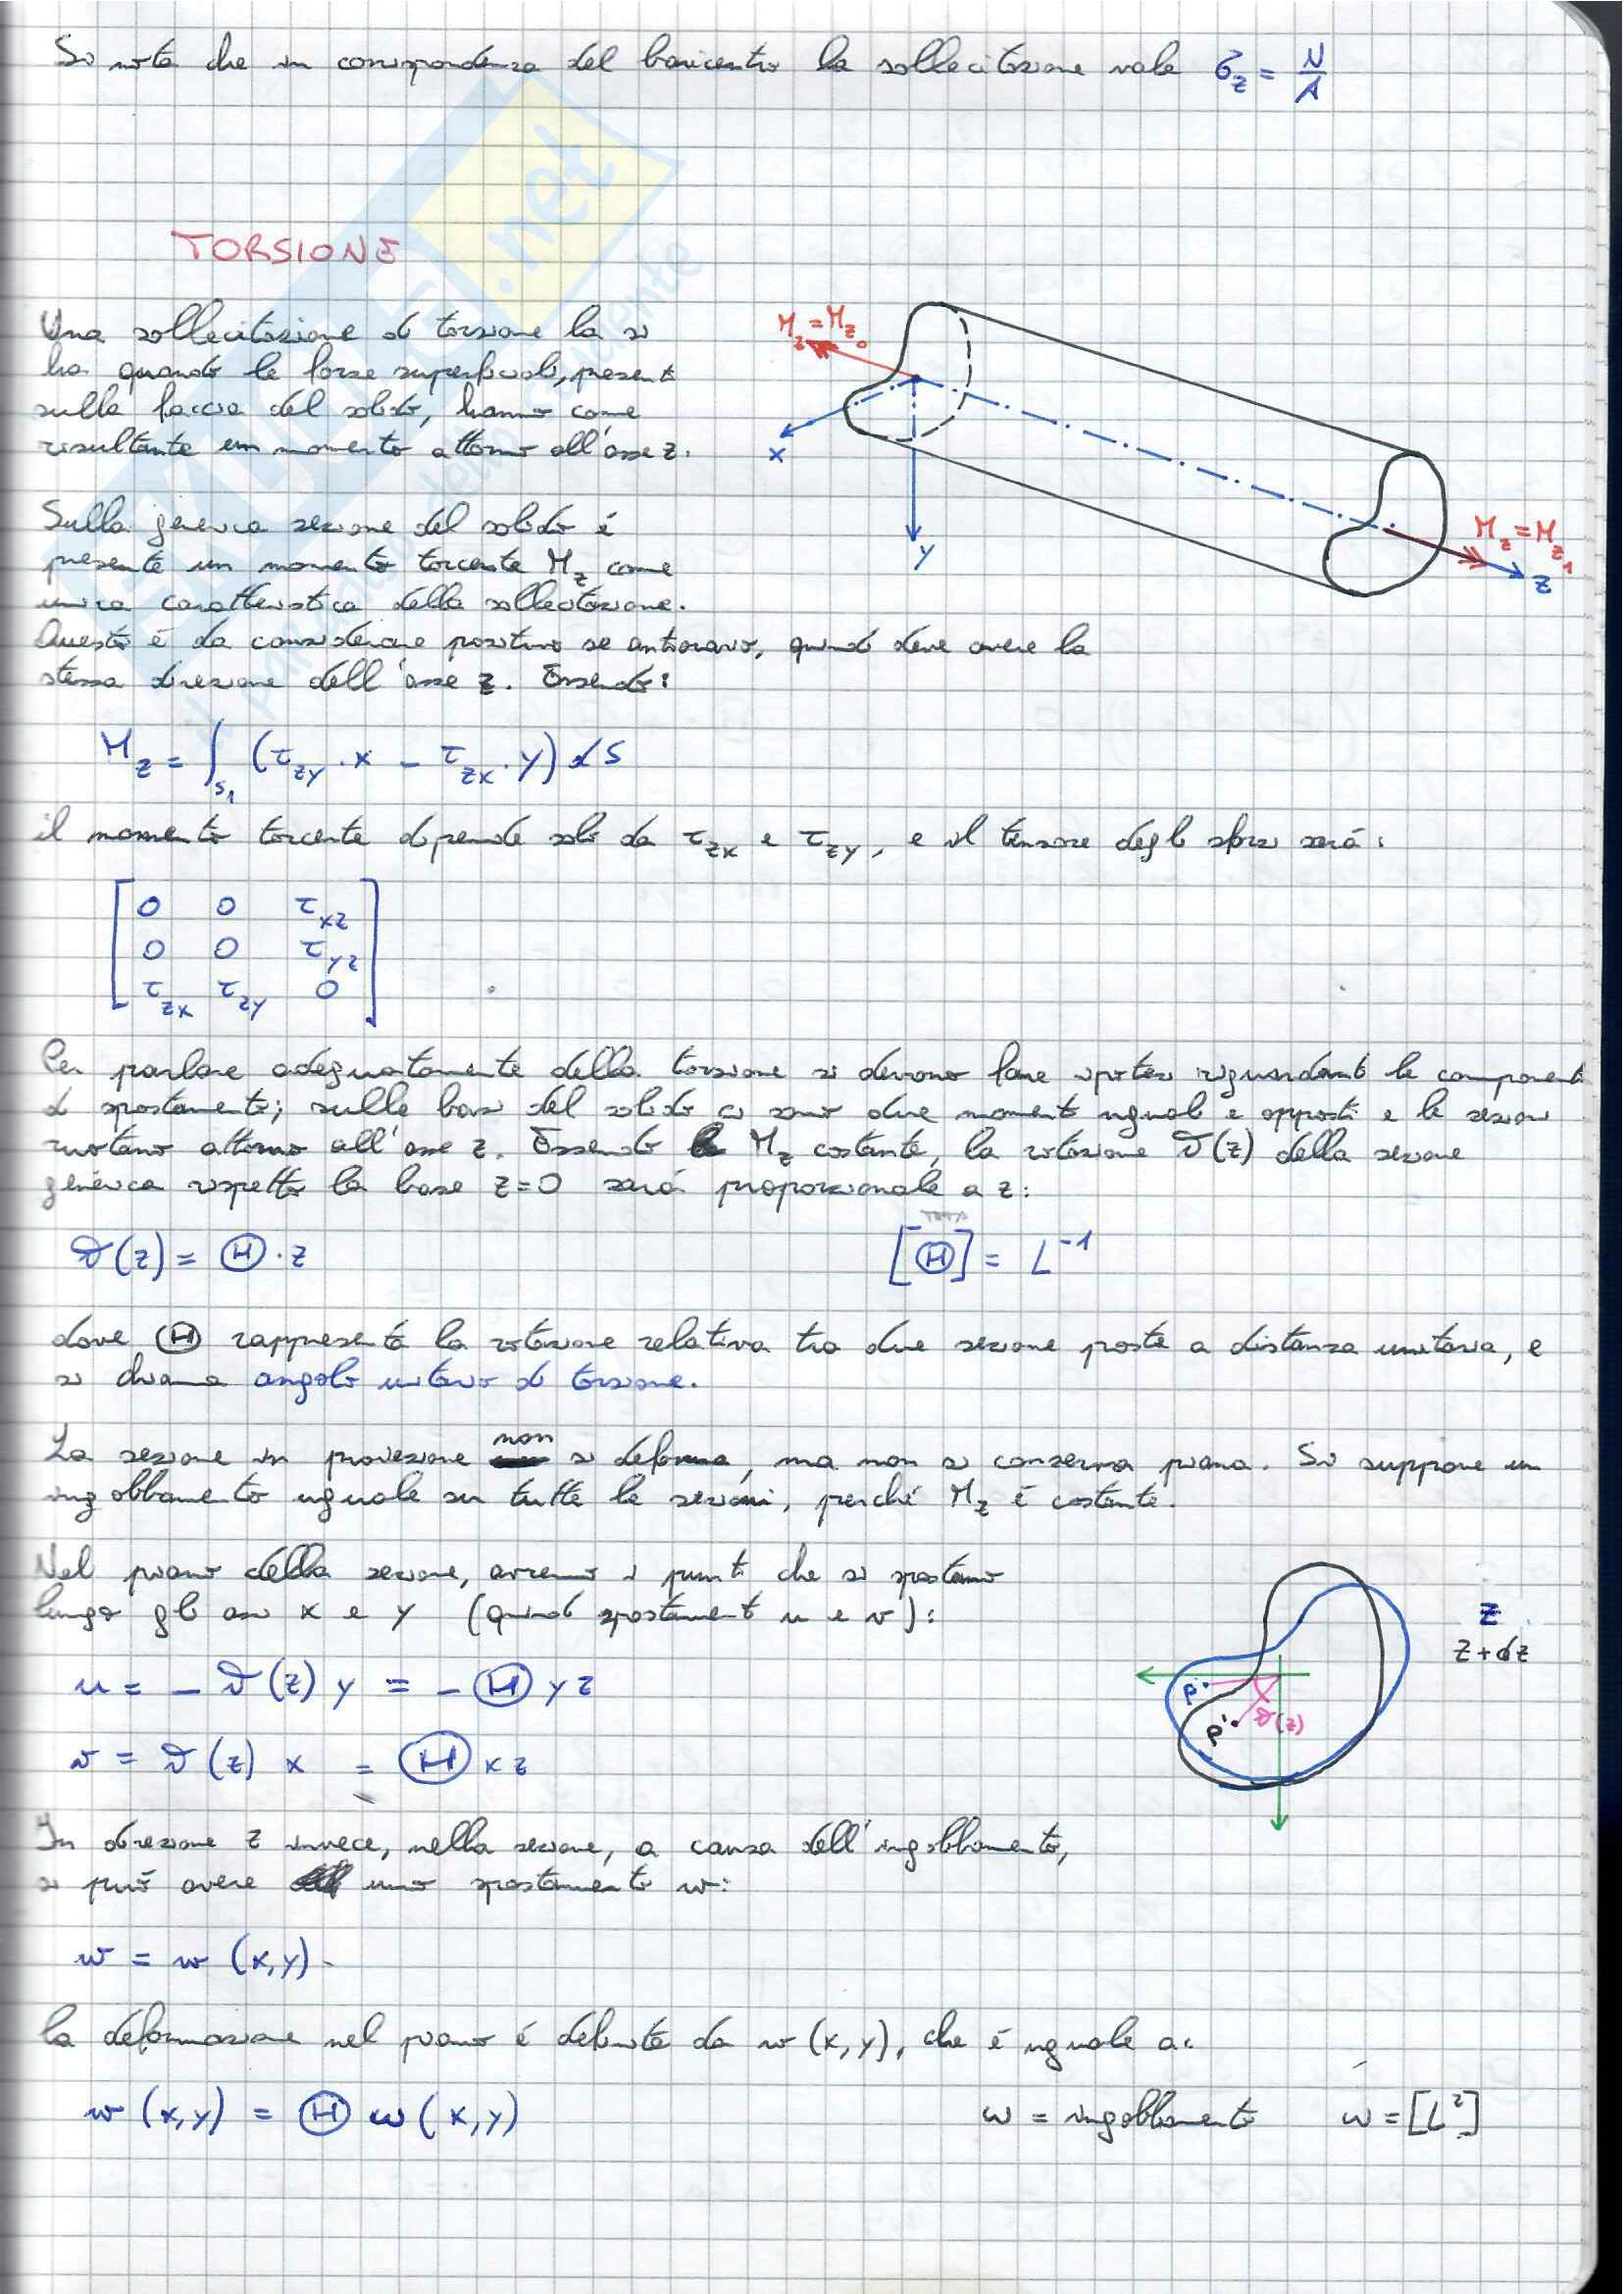 Si nota che in corrispondenza del baricentro la sollecitazione vale σz = N/A
TORSIONE
Una sollecitazione di torsione la si
ha quando le forze superficiali, presenti
sulla faccia del solido, hanno come
risultante un momento attorno all'asse z.
Mz = Mz0
x
y
Mz = Mz1
z
Sulla generica sezione del solido é
presente un momento torcente Mz come
unica caratteristica della sollecitazione.
Questo é da considerare positivo se antiorario, quindi deve avere la
stessa direzione dell'asse z. Essendo:
Mz = ∫S1 (τzy · x - τzx · y) dS
il momento torcente dipende solo da τzx e τzy, e il tensore degli sforzi sará:
[ 0 0 τxz
0 0 τyz
τzx τzy 0 ]
Per parlare adeguatamente della torsione si devono fare ipotesi riguardanti le componenti
di spostamento; sulle basi del solido ci sono due momenti uguali e opposti e le sezioni
ruotano attorno all'asse z. Essendo Mz costante, la rotazione ϑ(z) della sezione
generica rispetto la base z=0 sará proporzionale a z:
ϑ(z) = Θ · z
[Θ] = L⁻¹
dove Θ rappresenta la rotazione relativa tra due sezione poste a distanza unitaria, e
si chiama angolo unitario di torsione.
La sezione in proiezione non si deforma, ma non si conserva piana. Si suppone un
ingobbamento uguale su tutte le sezioni, perché Mz é costante.
Nel piano della sezione, avremo i punti che si spostano
lungo gli assi x e y (quindi spostamenti u e v):
u = - ϑ(z) y = - Θ y z
v = ϑ(z) x = Θ x z
z
z+dz
P
P'
ϑ(z)
In direzione z invece, nella sezione, a causa dell'ingobbamento,
si puó avere uno spostamento w:
w = w (x,y).
la deformazione nel piano é definita da w (x,y), che é uguale a:
w (x,y) = Θ ω (x,y)
ω = ingobbamento ω = [L²]
.net